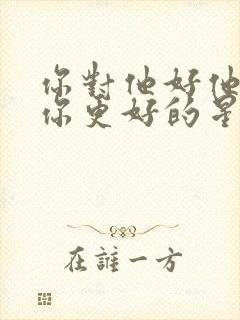 你對他好他
你更好的星
在誰一方